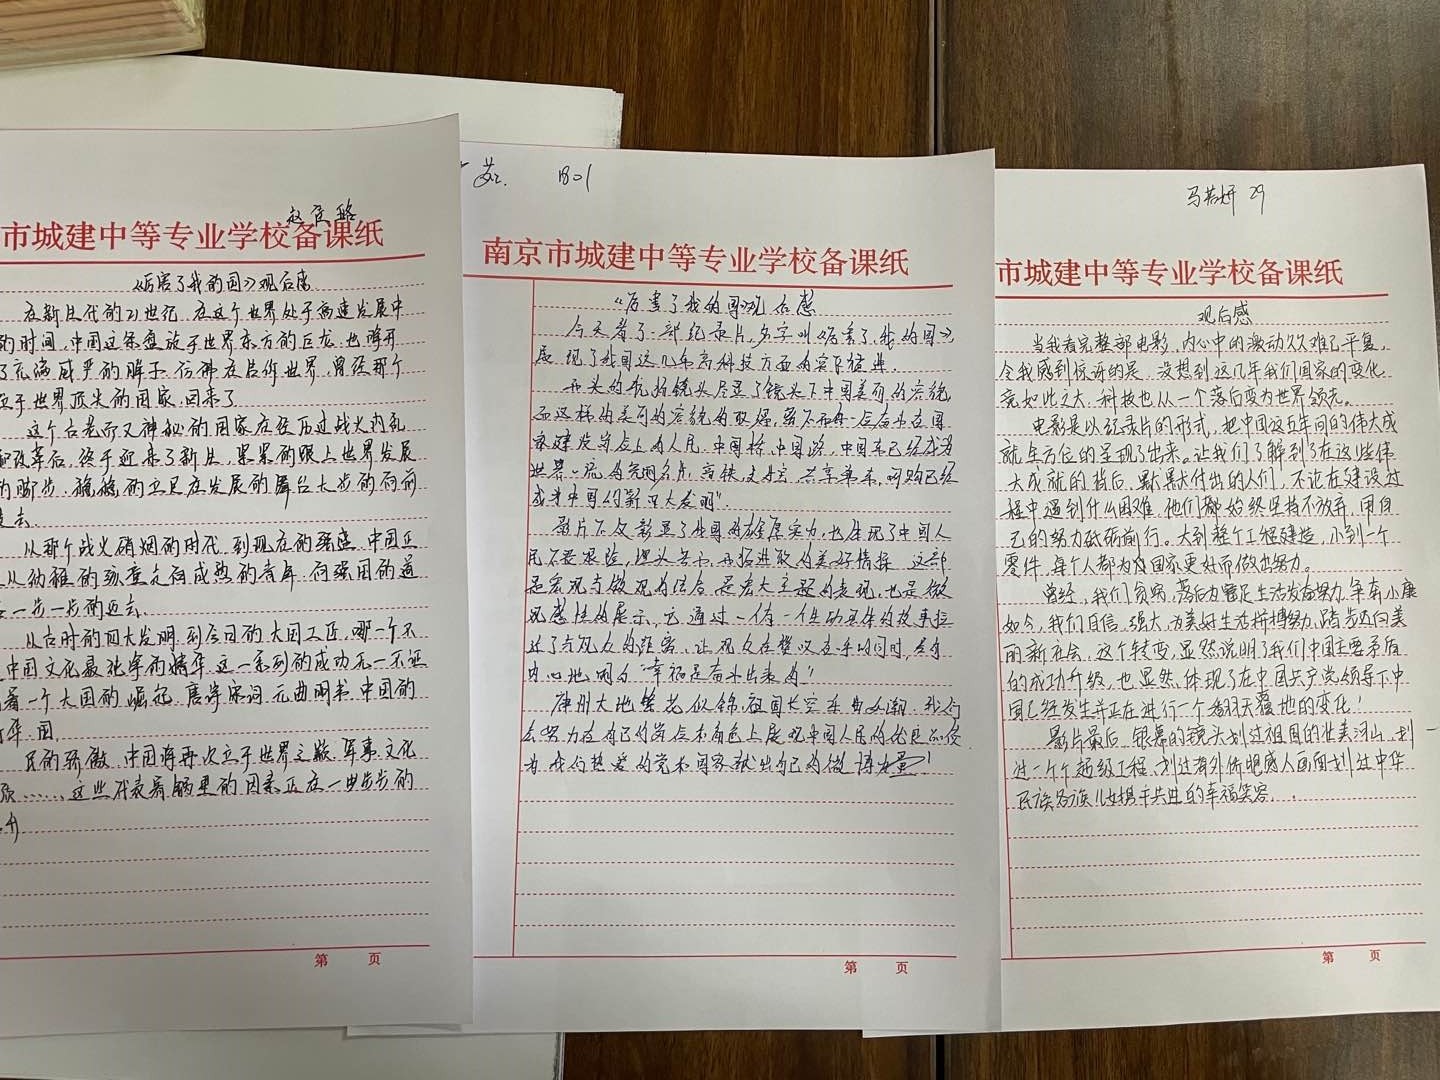 市城建中等专业学校备课纸
《厉害了我的国》观后感
在新时代的21世纪,在这个世界处于高速发展中
的时间,中国这条盘旋于世界东方的巨龙,也睁开
了充满威严的眸子,仿佛在告诉世界,曾经那个
立于世界顶尖的国家,回来了
这个古老而又神秘的国家在经历过战火内乱
改革后,终于迎来了新生,紧紧的跟上世界发展
的脚步,稳稳的立足在发展的舞台大步的向前
走去.
从那个战火硝烟的时代,到现在的强盛,中国正
从幼稚的孩童走向成熟的青年,向强国的道
一步一步的迈去.
从古时的四大发明,到今日的大国工匠,哪一个不
中国文化最化学的精华,这一系列的成功无一不证
着一个大国的崛起,唐诗宋词,元曲明书,中国的
国
民的骄傲,中国将再次立于世界之巅,军事,文化
……,这些代表着的因素正在一步步的
升
第 页
苏. 1801
南京市城建中等专业学校备课纸
《厉害了我的国》观后感
今天看了一部纪录片,名字叫《厉害了,我的国》
展现了我国这几年高科技方面的
的航拍镜头尽显了镜头下中国美丽的容貌,
而这样的美丽的容貌的,在国
家建设岗位上的人民,中国桥,中国路,中国车已经成为
世界一流的亮丽名片,高铁,支付宝,共享单车,网购已经
成为中国的"新四大发明".
影片不仅彰显了我国的雄厚实力,也体现了中国人
民不畏艰险,埋头苦干,开拓进取的美好情操,这部
是宏观与微观的结合,是宏大主题的表现,也是微
观感性的展示,它通过一个个生动具体的故事拉
近了与观众的距离,让观众在赞叹之余的同时,
内心地明白"幸福是奋斗出来的"!
神州大地繁花似锦,祖国长空乐曲如潮,我们
会努力在自己的岗位本角色上展现中国人民的优良品德
为我们热爱的党和国家献出自己的微薄力量!
第 页
马若妍 29
市城建中等专业学校备课纸
观后感
当我看完整部电影,内心中的激动久久难已平复,
令我感到惊讶的是,没想到这几年我们国家的变化
竟如此之大,科技也从一个落后变为世界领先。
电影是以纪录片的形式,把中国这五年间的伟大成
就全方位的呈现了出来。让我们了解到了在这些伟
大成就的背后,默默付出的人们,不论在建设过
程中遇到什么困难,他们都始终坚持不放弃,用自
己的努力砥砺前行。大到整个工程建造,小到一个
零件,每个人都为国家更好而做出努力。
曾经,我们贫穷,落后,为满足生活发奋努力,争奔小康
如今,我们自信,强大,为美好生活拼搏努力,踏步迈向美
丽新社会,这个转变,显然说明了我们中国主要矛盾
的成功升级,也显然体现了在中国共产党领导下中
国已经发生并正在进行一个翻天覆地的变化!
影片最后,银幕的镜头划过祖国的壮美河山,划
过一个个超级工程,划过海外侨胞感人画面,划过中华
民族各族儿女携手共进的幸福笑容..
第 页